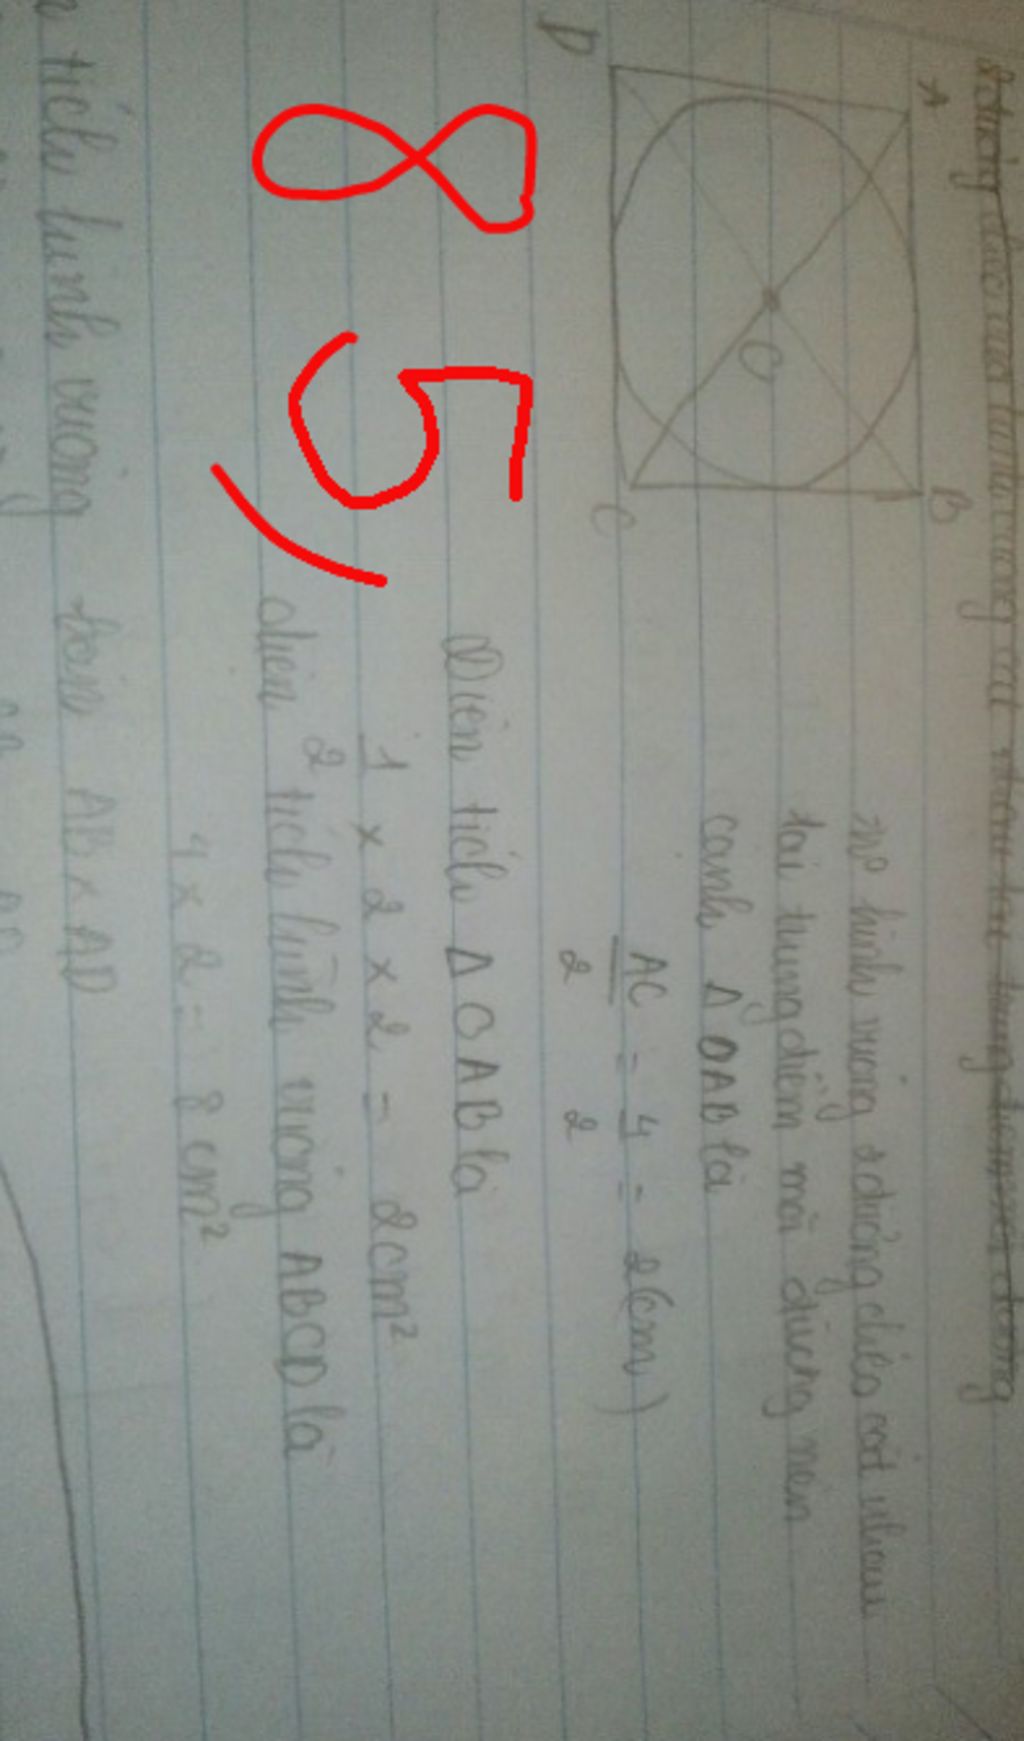 85)
A
B
D
C
O
Vì hình vuông 2 đường chéo cắt nhau
tại trung điểm mỗi đường nên
cạnh Δ OAB là
AC/2 = 4/2 = 2(cm)
Diện tích Δ OAB là
1/2 x 2 x 2 = 2cm²
diện tích hình vuông ABCD là
4 x 2 = 8 cm²
tích hình vuông bằng AB x AD